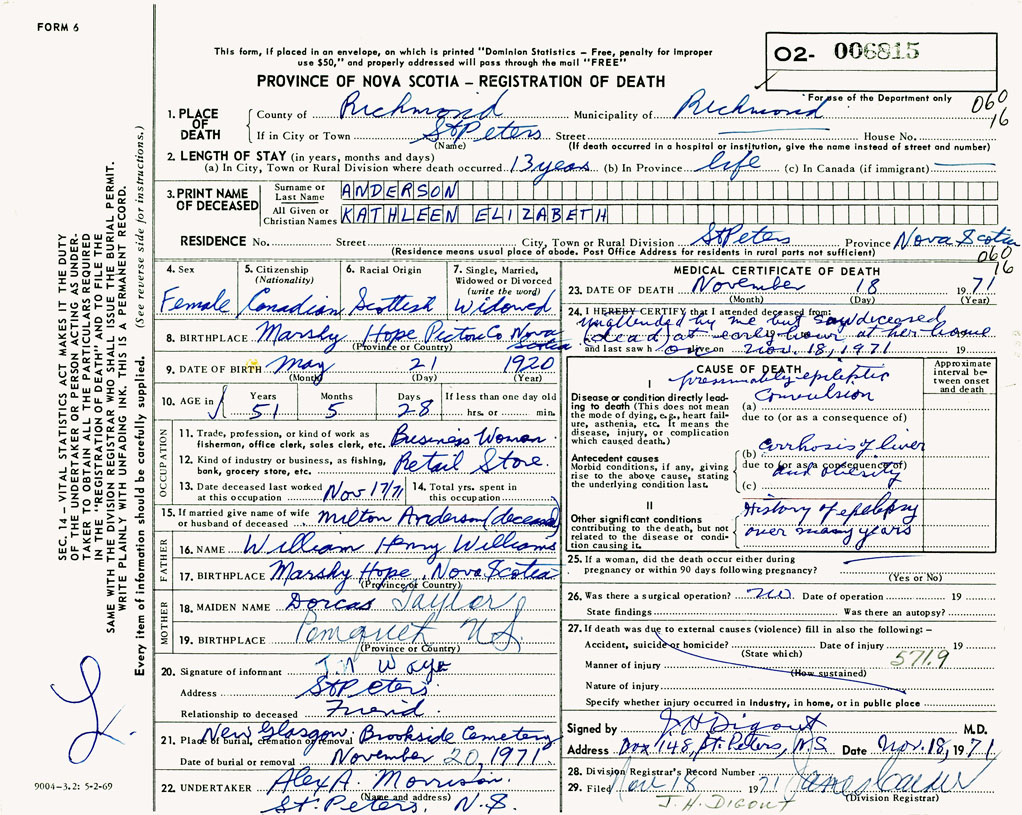 FORM 6
This form, if placed in an envelope, on which is printed "Dominion Statistics – Free, penalty for improper
use $50," and properly addressed will pass through the mail "FREE"
O2- 006815
PROVINCE OF NOVA SCOTIA – REGISTRATION OF DEATH
For use of the Department only
060
16
1. PLACE OF DEATH
County of Richmond Municipality of Richmond
If in City or Town St Peters Street House No.
(Name) (If death occurred in a hospital or institution, give the name instead of street and number)
2. LENGTH OF STAY (in years, months and days)
(a) In City, Town or Rural Division where death occurred 13 years (b) In Province life (c) In Canada (if immigrant)
3. PRINT NAME OF DECEASED
Surname or Last Name ANDERSON
All Given or Christian Names KATHLEEN ELIZABETH
RESIDENCE No. Street City, Town or Rural Division St Peters Province Nova Scotia
(Residence means usual place of abode. Post Office Address for residents in rural parts not sufficient)
060
16
4. Sex Female
5. Citizenship (Nationality) Canadian
6. Racial Origin Scottish
7. Single, Married, Widowed or Divorced (write the word) Widowed
8. BIRTHPLACE Marshy Hope Pictou Co Nova Scotia
(Province or Country)
9. DATE OF BIRTH May 21 1920
(Month) (Day) (Year)
10. AGE in Years 51 Months 5 Days 28 If less than one day old hrs. or min.
OCCUPATION
11. Trade, profession, or kind of work as fisherman, office clerk, sales clerk, etc. Business Woman
12. Kind of industry or business, as fishing, bank, grocery store, etc. Retail Store.
13. Date deceased last worked at this occupation Nov 17/71
14. Total yrs. spent in this occupation
15. If married give name of wife or husband of deceased Milton Anderson (deceased)
FATHER
16. NAME William Henry Williams
17. BIRTHPLACE Marshy Hope, Nova Scotia
(Province or Country)
MOTHER
18. MAIDEN NAME Dorcas Taylor
19. BIRTHPLACE Pomquet N.S.
(Province or Country)
20. Signature of informant
Address St Peters
Relationship to deceased Friend.
21. Place of burial, cremation or removal New Glasgow Brookside Cemetery
Date of burial or removal November 20, 1971
22. UNDERTAKER Alex A. Morrison
(Name and address)
St. Peters, N.S.
MEDICAL CERTIFICATE OF DEATH
23. DATE OF DEATH November 18 1971
(Month) (Day) (Year)
24. I HEREBY CERTIFY that I attended deceased from:
unattended by me but saw deceased
(dead) at early hour at her home
and last saw h alive on Nov. 18, 1971 19
CAUSE OF DEATH
Approximate interval between onset and death
I
Disease or condition directly leading to death (This does not mean the mode of dying, e.g., heart failure, asthenia, etc. It means the disease, injury, or complication which caused death.)
presumably epileptic
(a) Convulsion
due to (or as a consequence of)
Antecedent causes
Morbid conditions, if any, giving rise to the above cause, stating the underlying condition last.
(b) Cirrhosis of liver
due to (or as a consequence of)
and obesity
(c)
II
Other significant conditions
contributing to the death, but not related to the disease or condition causing it.
History of epilepsy
over many years
25. If a woman, did the death occur either during pregnancy or within 90 days following pregnancy?
(Yes or No)
26. Was there a surgical operation? no Date of operation 19
State findings Was there an autopsy?
27. If death was due to external causes (violence) fill in also the following: –
Accident, suicide or homicide? Date of injury 19
(State which)
571.9
Manner of injury
(How sustained)
Nature of injury
Specify whether injury occurred in Industry, in home, or in public place
Signed by J H Digout M.D.
Address Box 148, St. Peters, NS Date Nov. 18, 1971
28. Division Registrar's Record Number
29. Filed Nov 18 1971
(Division Registrar)
J. H. DIGOUT
SEC. 14 – VITAL STATISTICS ACT MAKES IT THE DUTY
OF THE UNDERTAKER OR PERSON ACTING AS UNDER-
TAKER TO OBTAIN ALL THE PARTICULARS REQUIRED
IN THE "REGISTRATION OF DEATH" AND TO FILE THE
SAME WITH THE DIVISION REGISTRAR WHO SHALL ISSUE THE BURIAL PERMIT.
WRITE PLAINLY WITH UNFADING INK. THIS IS A PERMANENT RECORD.
Every item of information should be carefully supplied. (See reverse side for instructions.)
9004–3.2: 5-2-69